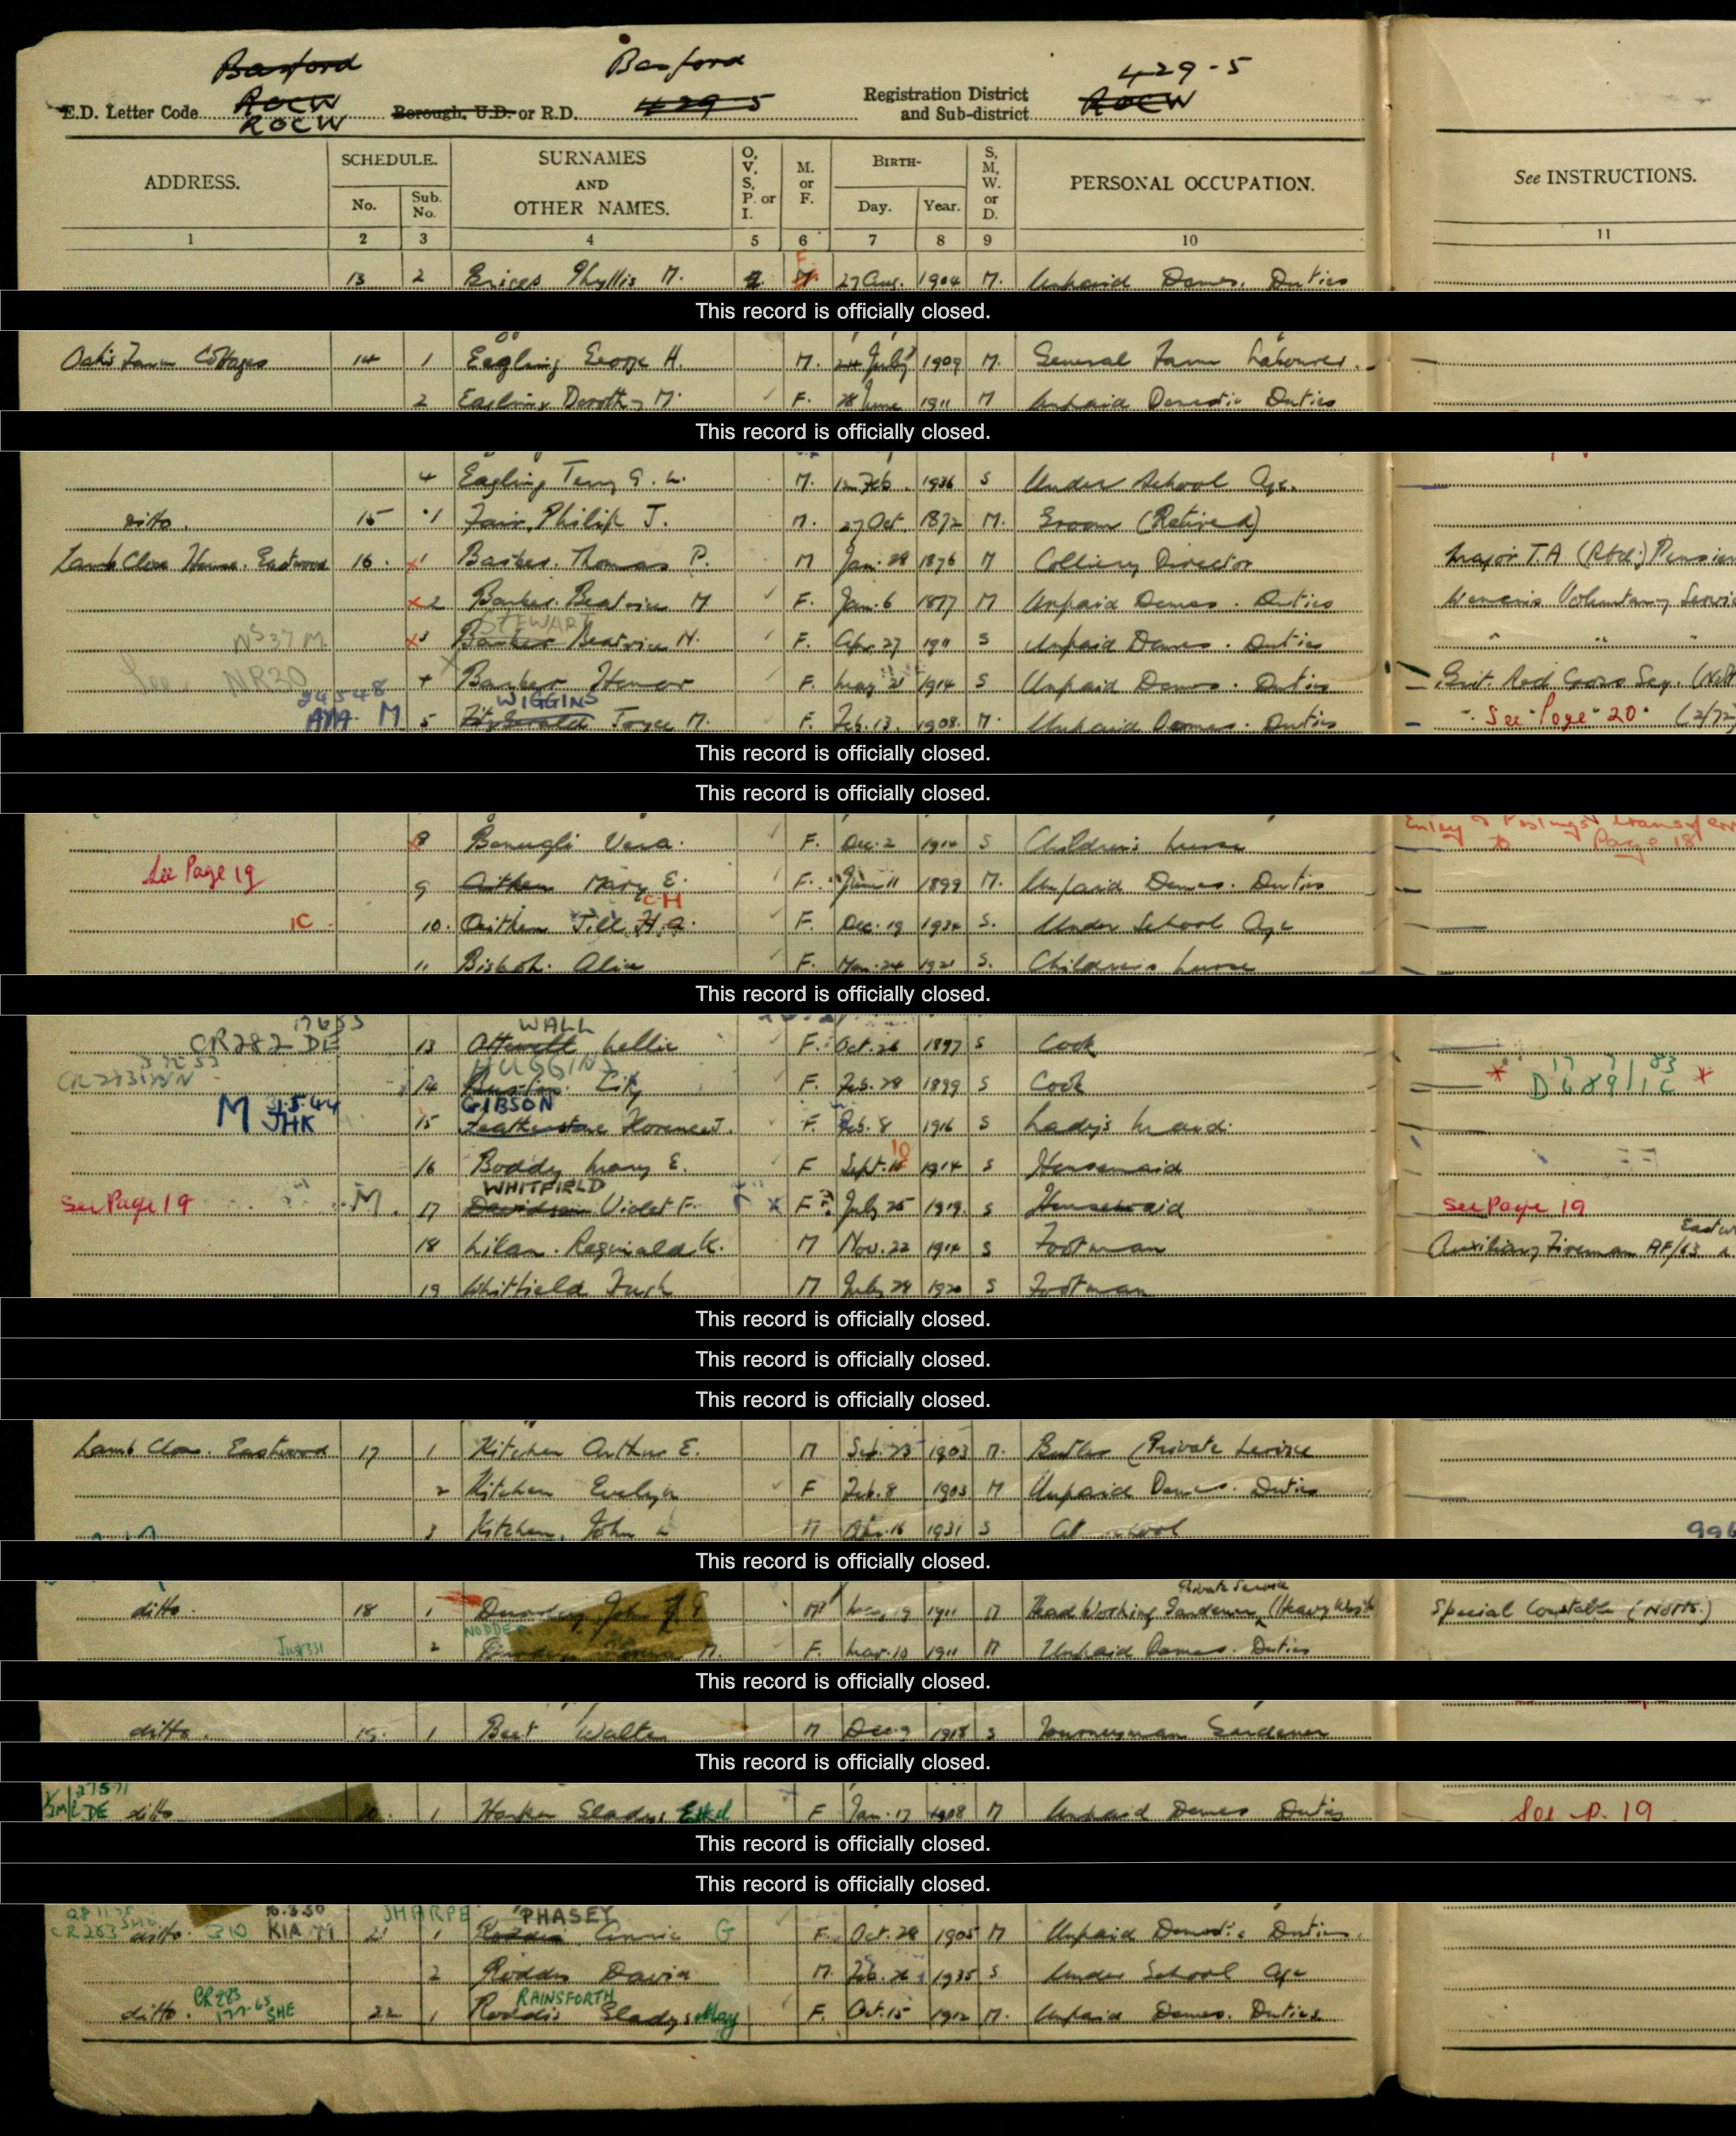 Basford Basford 429-5
E.D. Letter Code ROCW Borough, U.D. or R.D. 429-5 Registration District and Sub-district ROCW
ROCW
ADDRESS. SCHEDULE. No. Sub. No. SURNAMES AND OTHER NAMES. O, V, S, P. or I. M. or F. BIRTH- Day. Year. S, M, W. or D. PERSONAL OCCUPATION. See INSTRUCTIONS.
1 2 3 4 5 6 7 8 9 10 11
13 2 Phyllis M. F 27 Aug. 1904 M. Unpaid Domes. Duties
This record is officially closed.
Oaks Farm Cottages 14 1 Eagling George H. M. 24 July 1909 M. General Farm Labourer.
2 Eagling Dorothy M. F. 28 June 1911 M Unpaid Domestic Duties
This record is officially closed.
4 Eagling Terry G. W. M. 12 Feb. 1936 S Under School Age.
ditto. 15 1 Fair, Philip J. M. 27 Oct 1872 M. Groom (Retired)
Lamb Close House. Eastwood 16. 1 Barber. Thomas P. M Jan. 28 1876 M Colliery Director Major T.A (Rtd:) Pension
2 Barber. Beatrice M F. Jan. 6 1877 M Unpaid Domes. Duties Womens Voluntary Servic
STEWART
NS 37 M 3 Barber Beatrice N. F. Apr. 27 1911 S Unpaid Domes. Duties " " "
See NR30 4 Barber Henor F. May 21 1914 S Unpaid Domes. Duties Brit. Red Cross Soy. (Nott
24548 WIGGINS
AYA M 5 FitzGerald Joyce M. F. Feb. 13. 1908. M. Unpaid Domes. Duties See Page 20 (2/72
This record is officially closed.
This record is officially closed.
8 Benugli Vera. F. Dec. 2 1914 S Childrens Nurse Entry & Postings transferr to Page 18
See Page 19 9 Aitken Mary E. F. June 11 1899 M. Unpaid Domes. Duties
CH
1C 10. Aitken Jill H. A. F. Dec. 19 1934 S. Under School Age
11 Bishop. Alice F. Mar. 24 1921 S. Childrens Nurse
This record is officially closed.
17653 WALL
CR282 DE 13 Attewell Nellie F. Oct. 26 1897 S Cook
HUGGINS
CR283 14 City F. Feb. 28 1899 S Cook * 17 7 83 D689 11C *
GIBSON
M 3.5.44 JHK 15 Featherstone Florence J. F. Feb. 8 1916 S Lady's Maid.
16 Boddy Mary E. F Sept. 10 1914 S Housemaid
WHITFIELD
See Page 19 M. 17 Davidson Violet F. F July 25 1919. S Housemaid See Page 19
18 Lilan. Reginald K. M Nov. 22 1914 S Footman Auxiliary Fireman AF/63
19 Whitfield M July 24 1920 S Footman
This record is officially closed.
This record is officially closed.
This record is officially closed.
Lamb Close. Eastwood 17 1 Kitchen Arthur E. M Sep. 23 1903 M. Butler (Private Service
2 Kitchen Evelyn F Feb. 8 1903 M Unpaid Domes. Duties
3 Kitchen, John W M Apr. 16 1931 S At School 996
This record is officially closed.
Private Service
ditto. 18 1 John M May 19 1911 M Head Working Gardener (Heavy Work Special Constable (Notts.)
NODDER
2 M. F. Mar. 10 1911 M Unpaid Domes. Duties
This record is officially closed.
ditto. 19. 1 Beet Walter M Dec. 9 1918 S Journeyman Gardener
This record is officially closed.
27571
DE ditto 20. 1 Harker Gladys Ethel F Jan. 17 1908 M Unpaid Domes Duties See p. 19
This record is officially closed.
This record is officially closed.
SHARPE PHASEY
CR283 ditto. 310 KIA M 21 1 Roddis Annie G F. Oct. 28 1905 M Unpaid Domestic Duties.
2 Roddis David M Feb. 26 1935 S Under School Age
RAINSFORTH
ditto. CR283 17.7.65 SHE 22 1 Roddis Gladys May F. Oct. 15 1912 M. Unpaid Domes. Duties